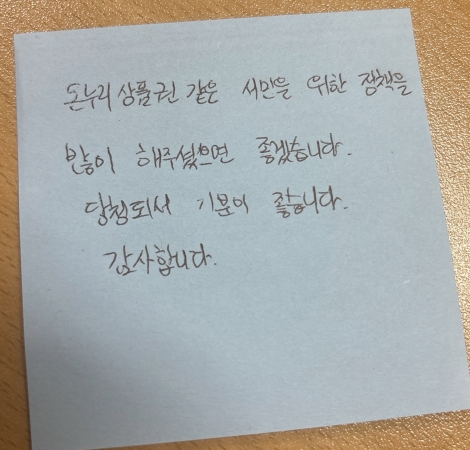 온누리상품권 같은 서민을 위한 정책을
많이 해주셨으면 좋겠습니다.
당첨되서 기분이 좋습니다.
감사합니다.